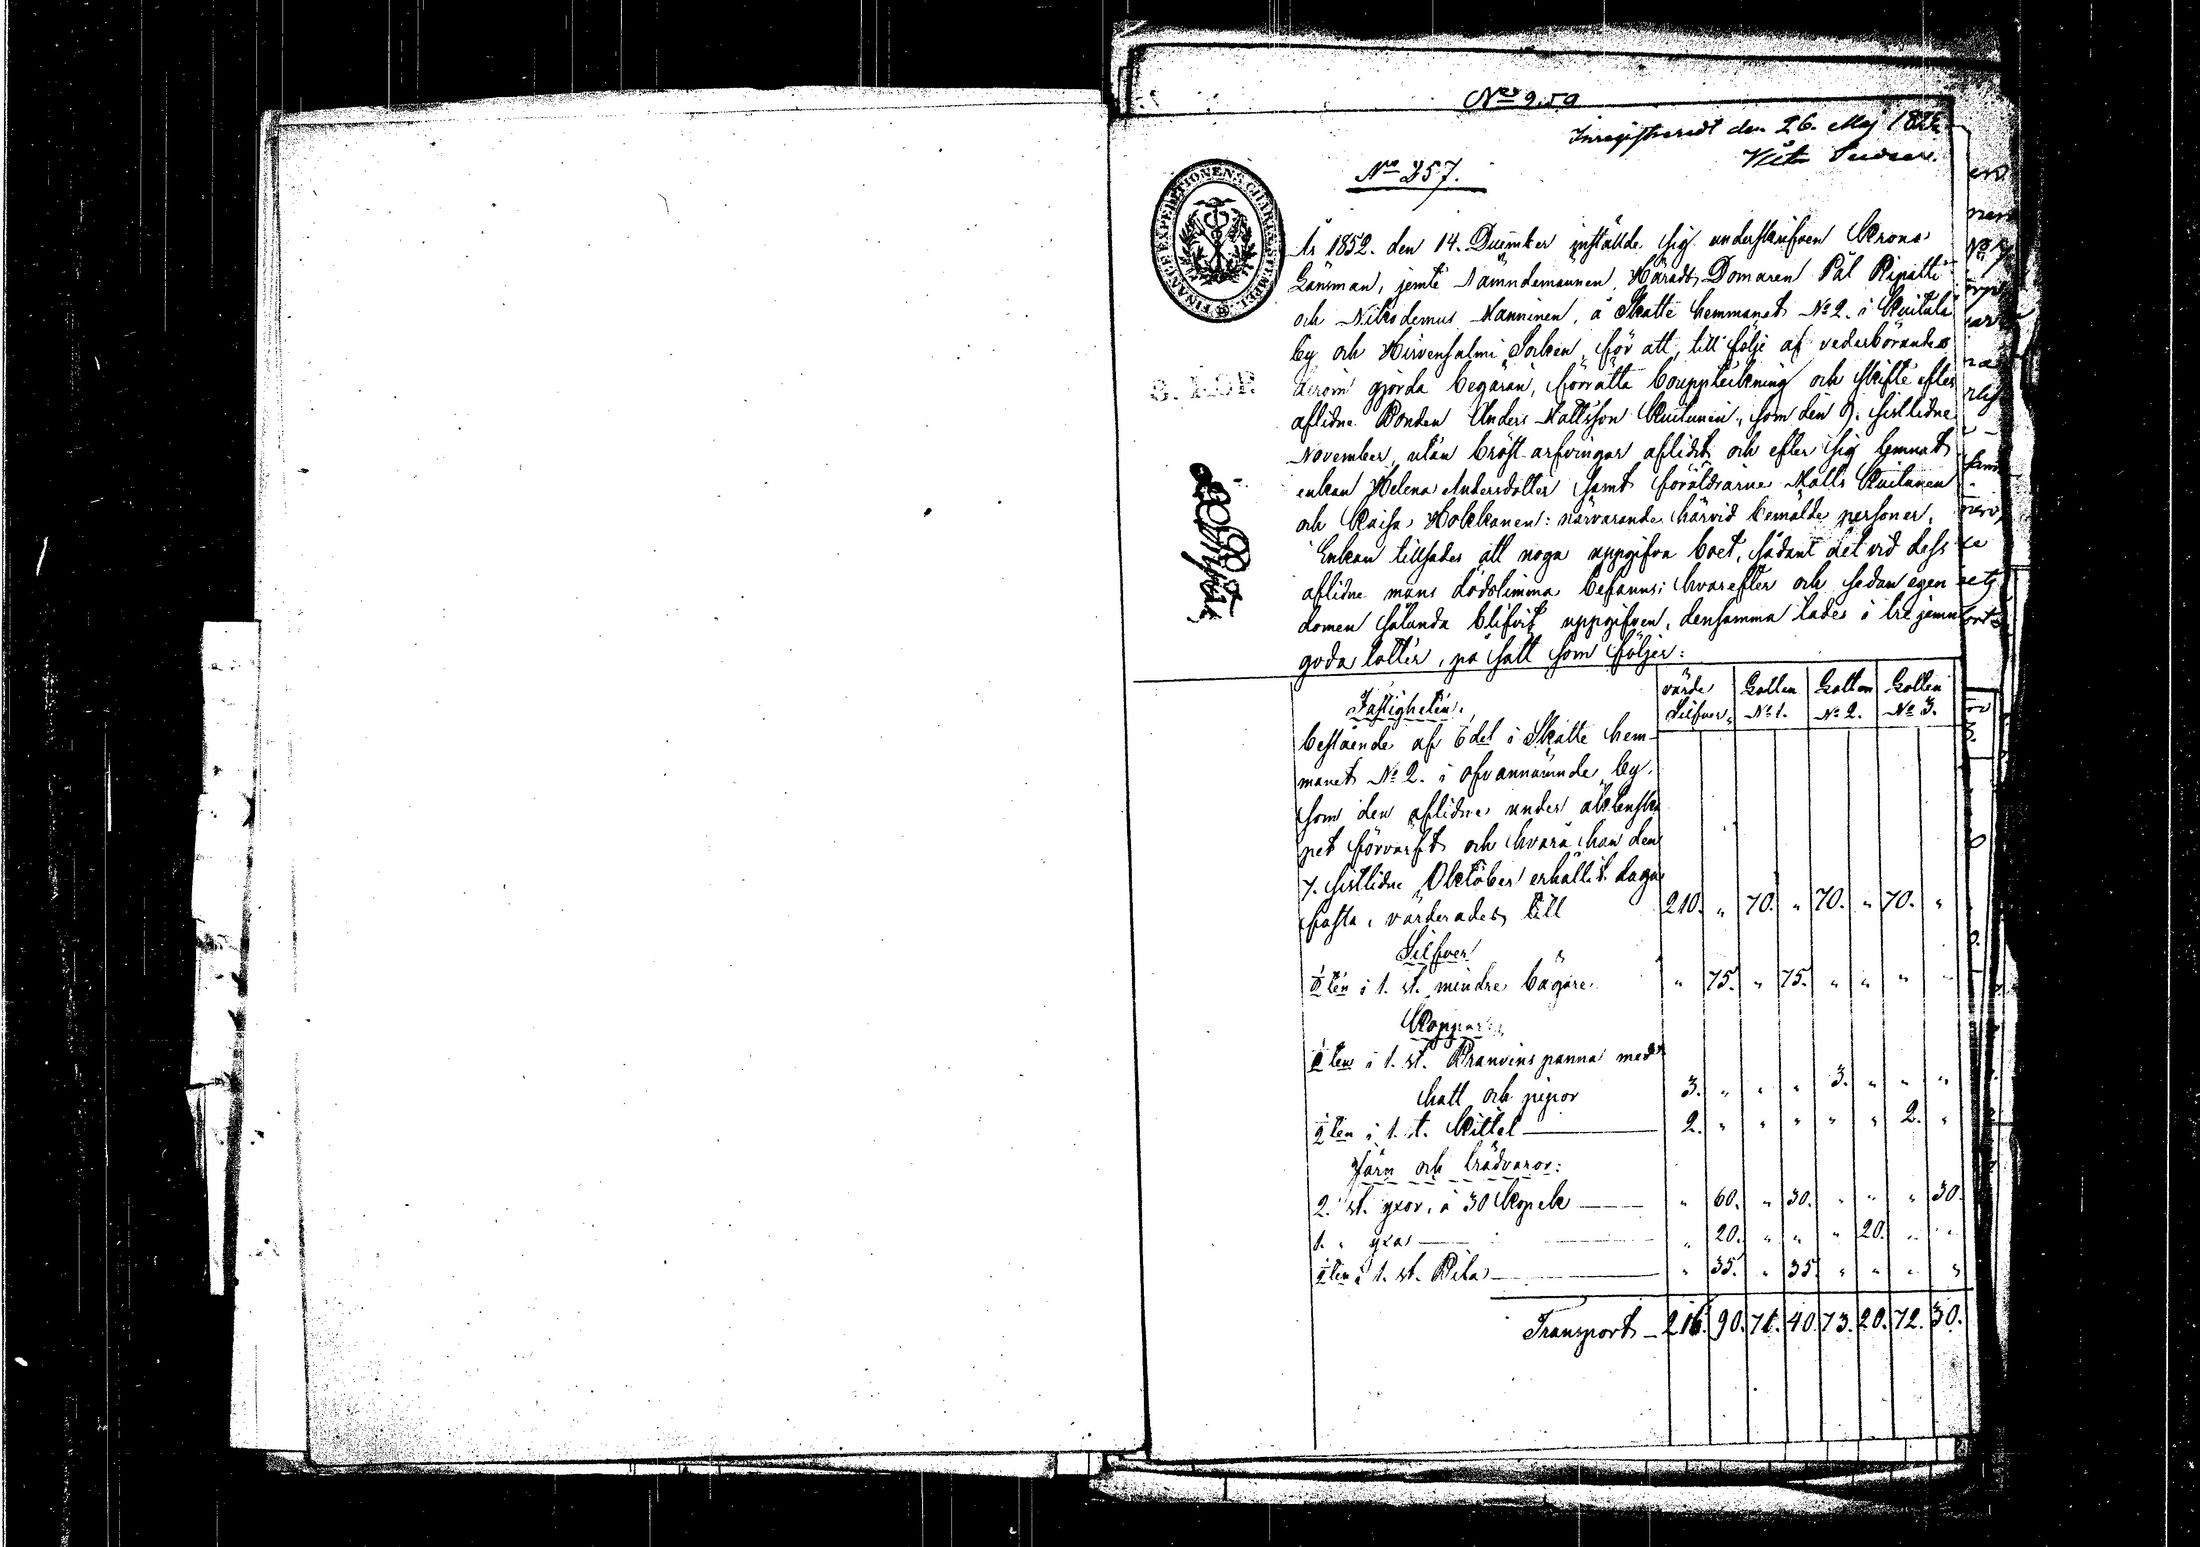 Inregistreradt den 26. Maj
No 257.
FINANCE EXPEDITIONENS CHARTÆ STEMPEL
År 1852. den 14. December instälde sig underskrifven Krono
Länsman, jemte Nämndemännen, Härads Domaren Pål Ripatti
och Nikodemus Manninen, å Skatte hemmanet No 2. i Kuitula
by och Hirvensalmi Socken, för att, till följe af vederbörandes
derom gjorda begäran, förrätta bouppteckning och skifte efter
aflidne Bonden Anders Mattsson Kuitunen, som den 9. sistlidne
November, utan bröst-arfvingar aflidit och efter sig lemnat
enkan Helena Andersdotter samt föräldrarne Matts Kuitunen
och Kaisa Hokkanen: närvarande härvid bemälde personer.
Enkan tillsades att noga uppgifva boet, sådant det vid dess
aflidne mans dödstimma befanns; hvarefter och sedan egen
domen sålunda blifvit uppgifven, densamma lades i tre jemn
goda lotter, på sätt som följer:
värde Silfver. Lotten No 1. Lotten No 2. Lotten No 3.
Fastigheten.
bestående af 6 del i Skatte hem-
manet No 2. i ofvannämnde by,
som den aflidne under äktenska
pet förvärft och hvarå han den
7. sistlidne Oktober erhållit laga
fasta, värderades till 210. " 70. " 70. " 70. "
Silfver
i 1. st. mindre bägare. " 75. " 75. " " " "
Koppar:
i 1. st. Brännvins panna med
hatt och pipor 3. " " " 3. " " "
½ten i 1. st. Kittel 2. " " " " " 2. "
Järn och trädvaror:
2. st. yxor, à 30 Kopek " 60. " 30. " " " 30.
1. " yxa " 20. " " " 20. " "
i 1. st. Bila " 35. " 35. " " " "
Transport 216. 90. 71. 40. 73. 20. 72. 30.